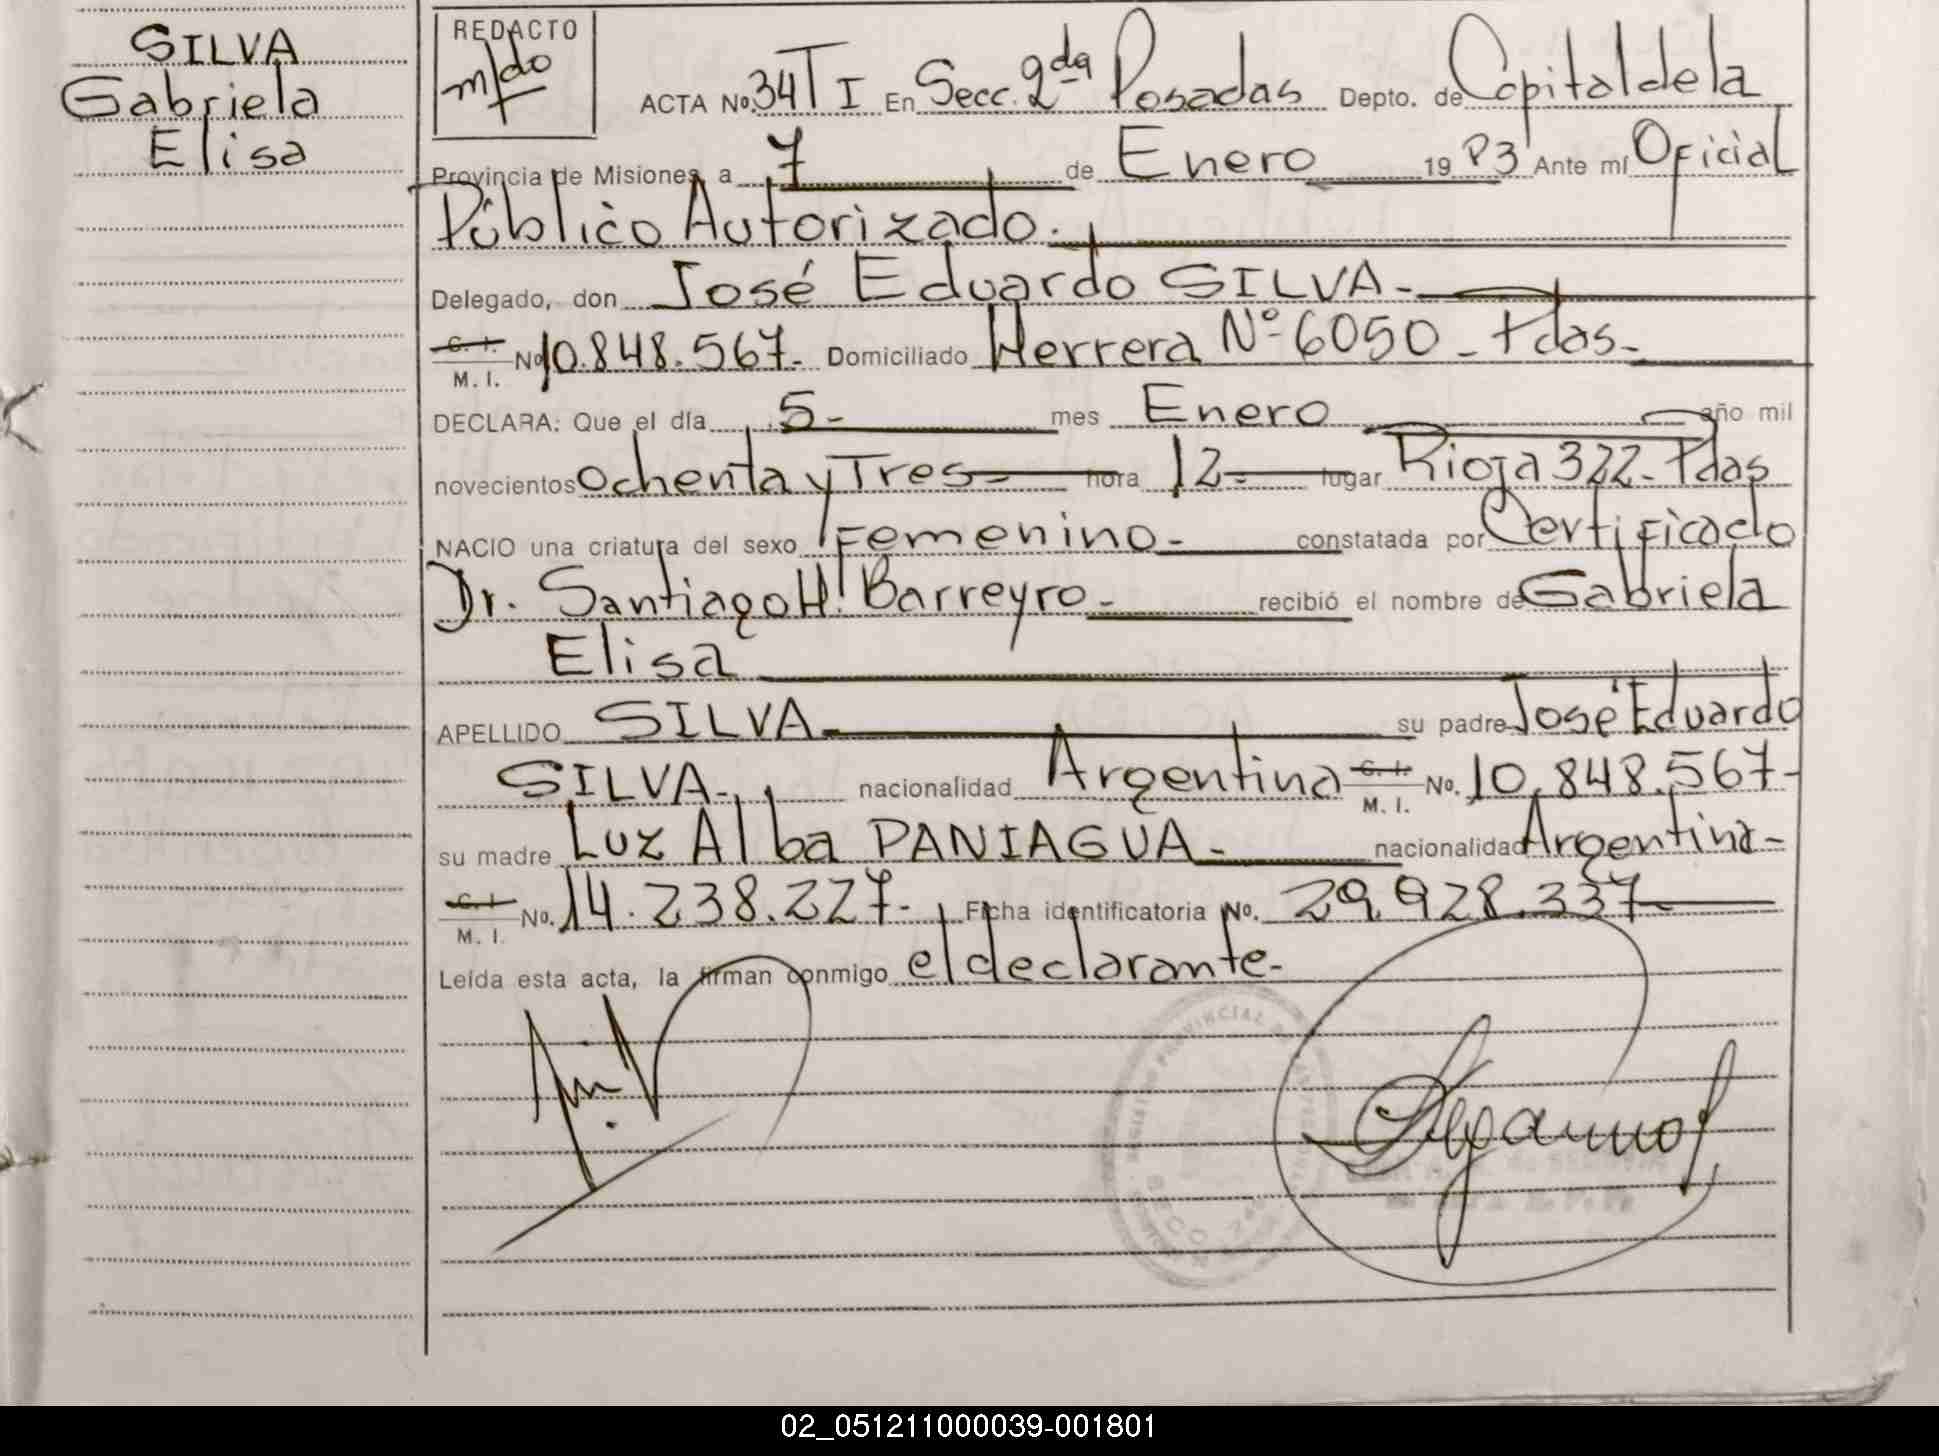 SILVA
Gabriela
Elisa
REDACTO
m/do
ACTA No. 34 T I En Secc. 2da Posadas Depto. de Capital de la
Provincia de Misiones a 7 de Enero 1983 Ante mí Oficial
Público Autorizado.
Delegado, don José Eduardo SILVA.-
C. I. M. I. No 10.848.567.- Domiciliado Herrera Nº 6050 - Pdas.-
DECLARA: Que el día 5- mes Enero año mil
novecientos ochenta y Tres- hora 12- lugar Rioja 322- Pdas
NACIO una criatura del sexo Femenino- constatada por Certificado
Dr. Santiago H. Barreyro- recibió el nombre de Gabriela
Elisa
APELLIDO SILVA su padre José Eduardo
SILVA.- nacionalidad Argentina C. I. M. I. No. 10.848.567-
su madre Luz Alba PANIAGUA.- nacionalidad Argentina-
C. I. M. I. No. 14.238.227- Ficha identificatoria No. 29.928.337
Leída esta acta, la firman conmigo el declarante-
PROVINCIAL
02_051211000039-001801